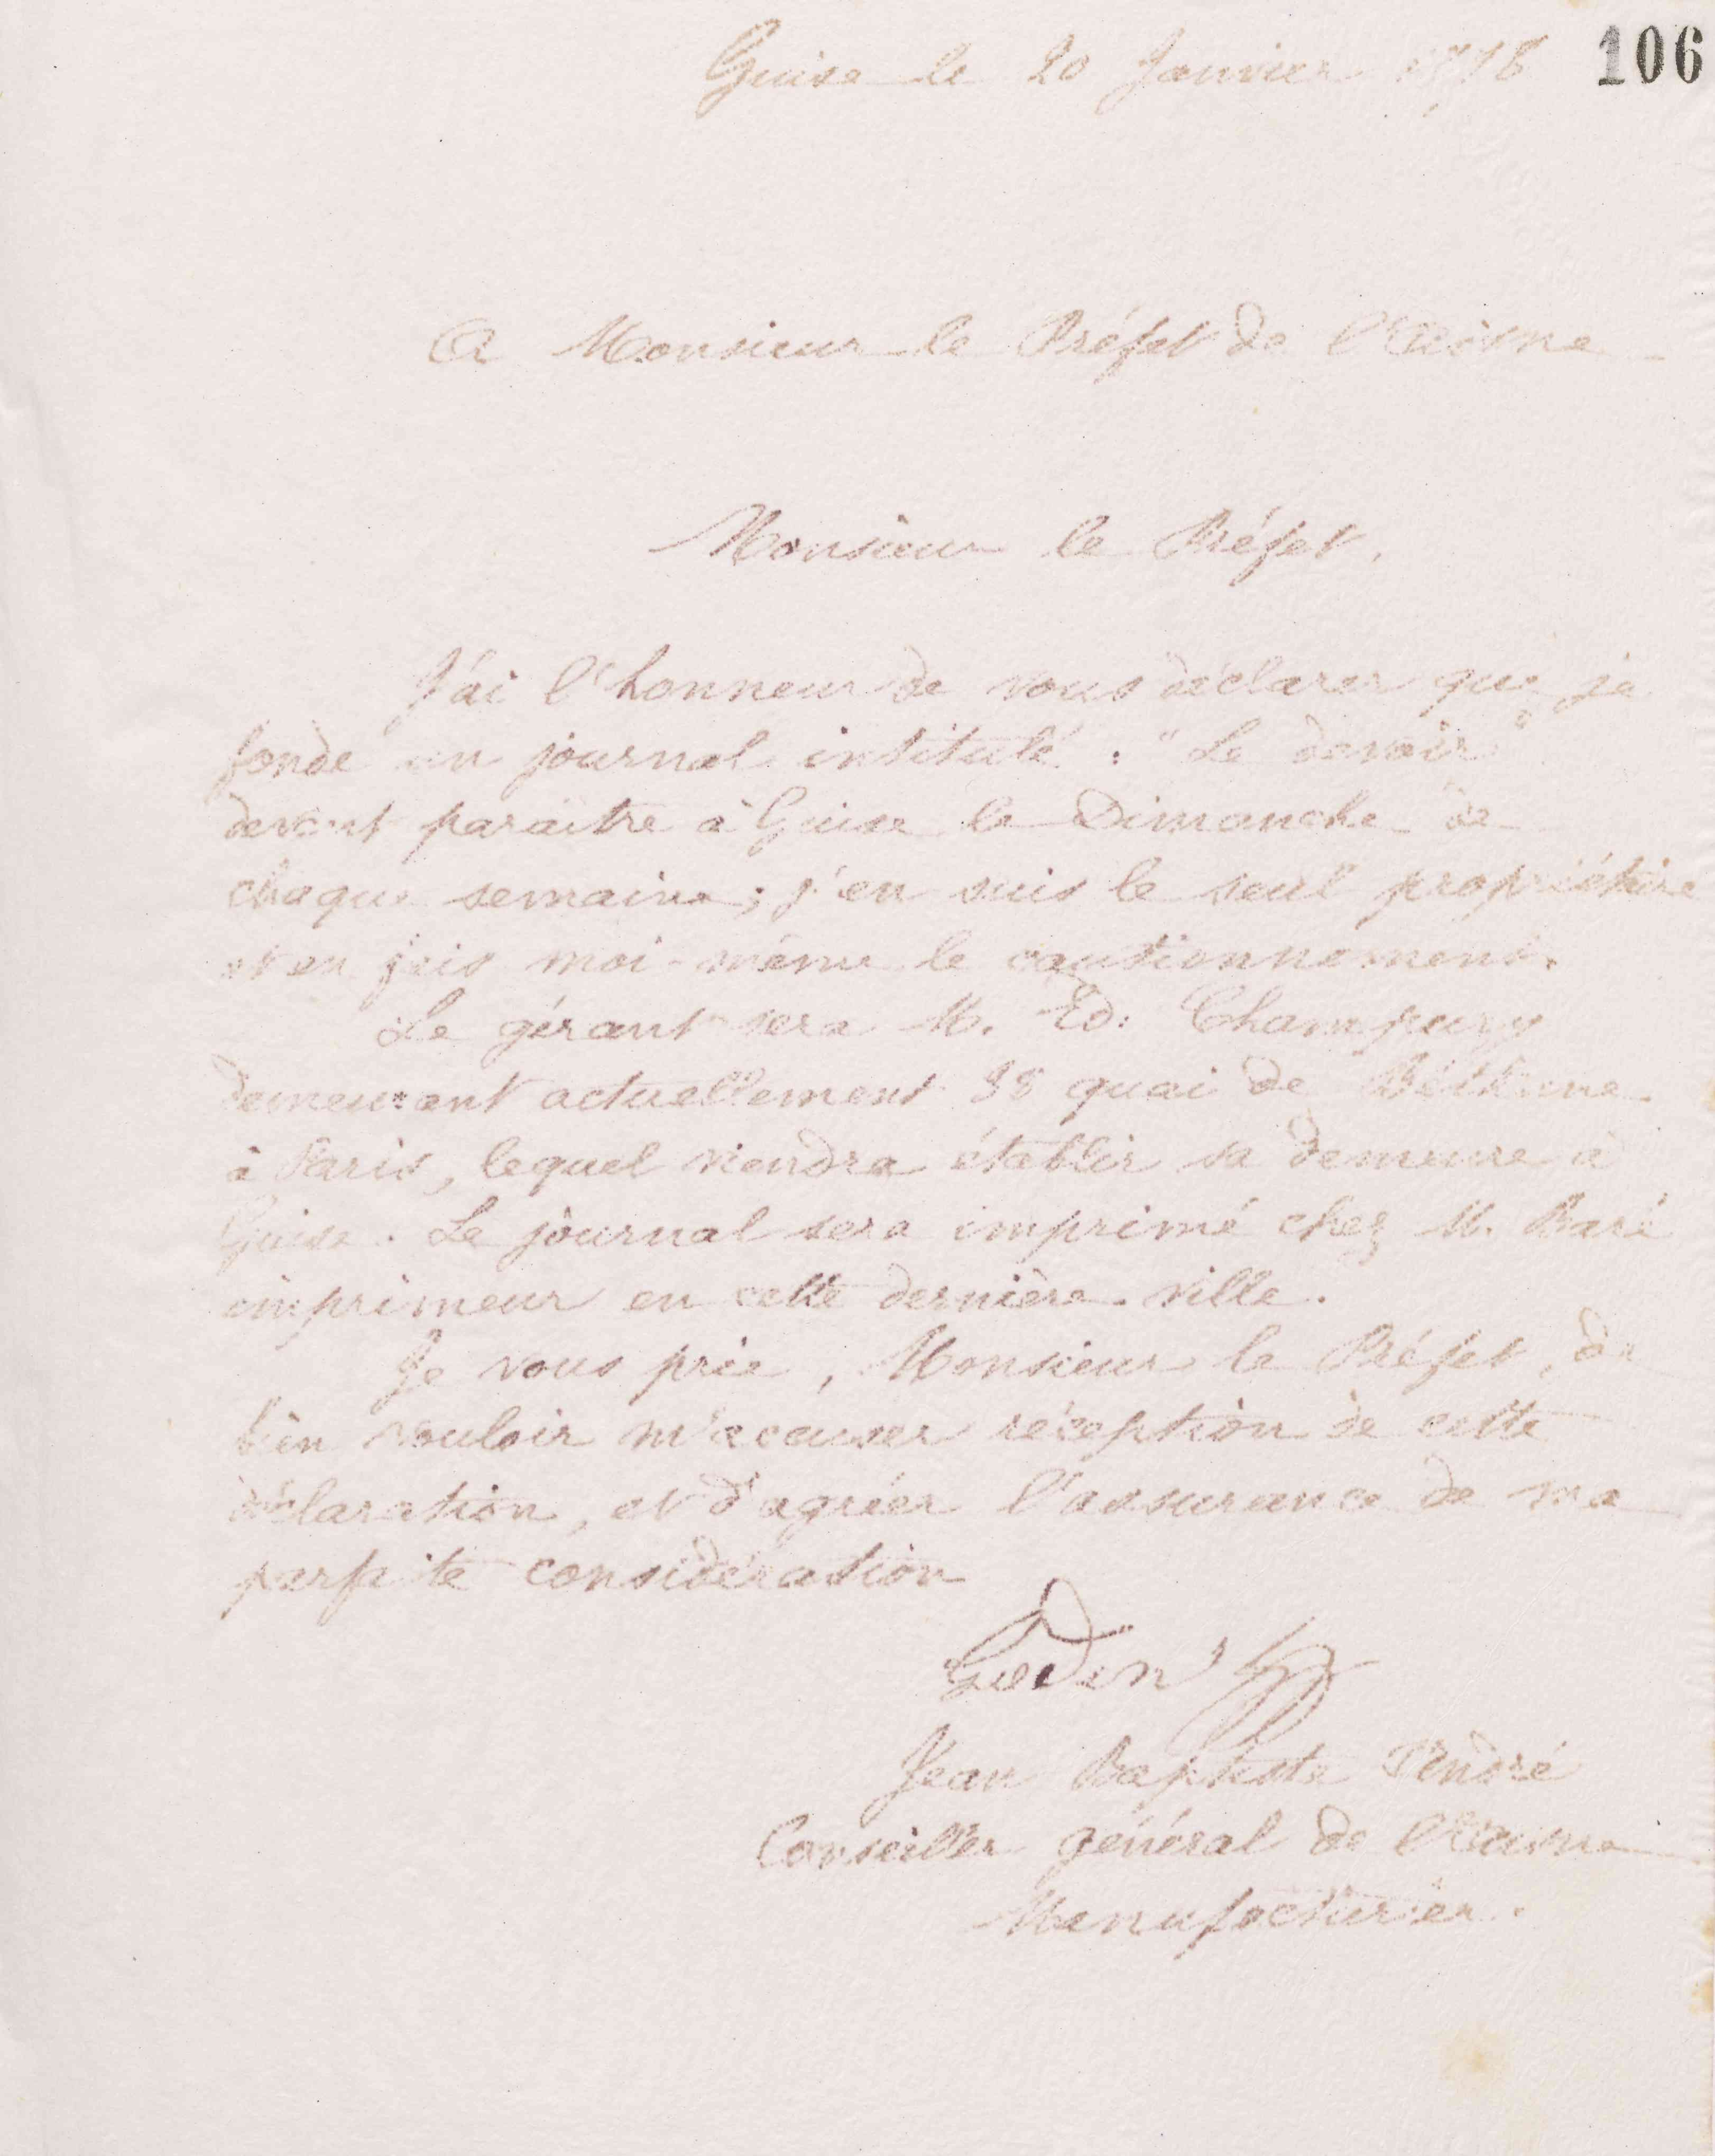 Guise le 20 Janvier 1878 106
A Monsieur le Préfet de l'Aisne
Monsieur le Préfet,
J'ai l'honneur de vous déclarer que je
fonde un journal intitulé : "Le devoir"
devant paraître à Guise le Dimanche de
chaque semaine ; j'en suis le seul propriétaire
et en fais moi-même le cautionnement.
Le gérant sera M. Ed. Champury
demeurant actuellement 38 quai de Béthune
à Paris, lequel viendra établir sa demeure à
Guise. Le journal sera imprimé chez M. Baré
imprimeur en cette dernière ville.
Je vous prie, Monsieur le Préfet, de
bien vouloir m'accuser réception de cette
déclaration, et d'agréer l'assurance de ma
parfaite considération
Godin
Jean Baptiste André
Conseiller général de l'Aisne
Manufacturier.